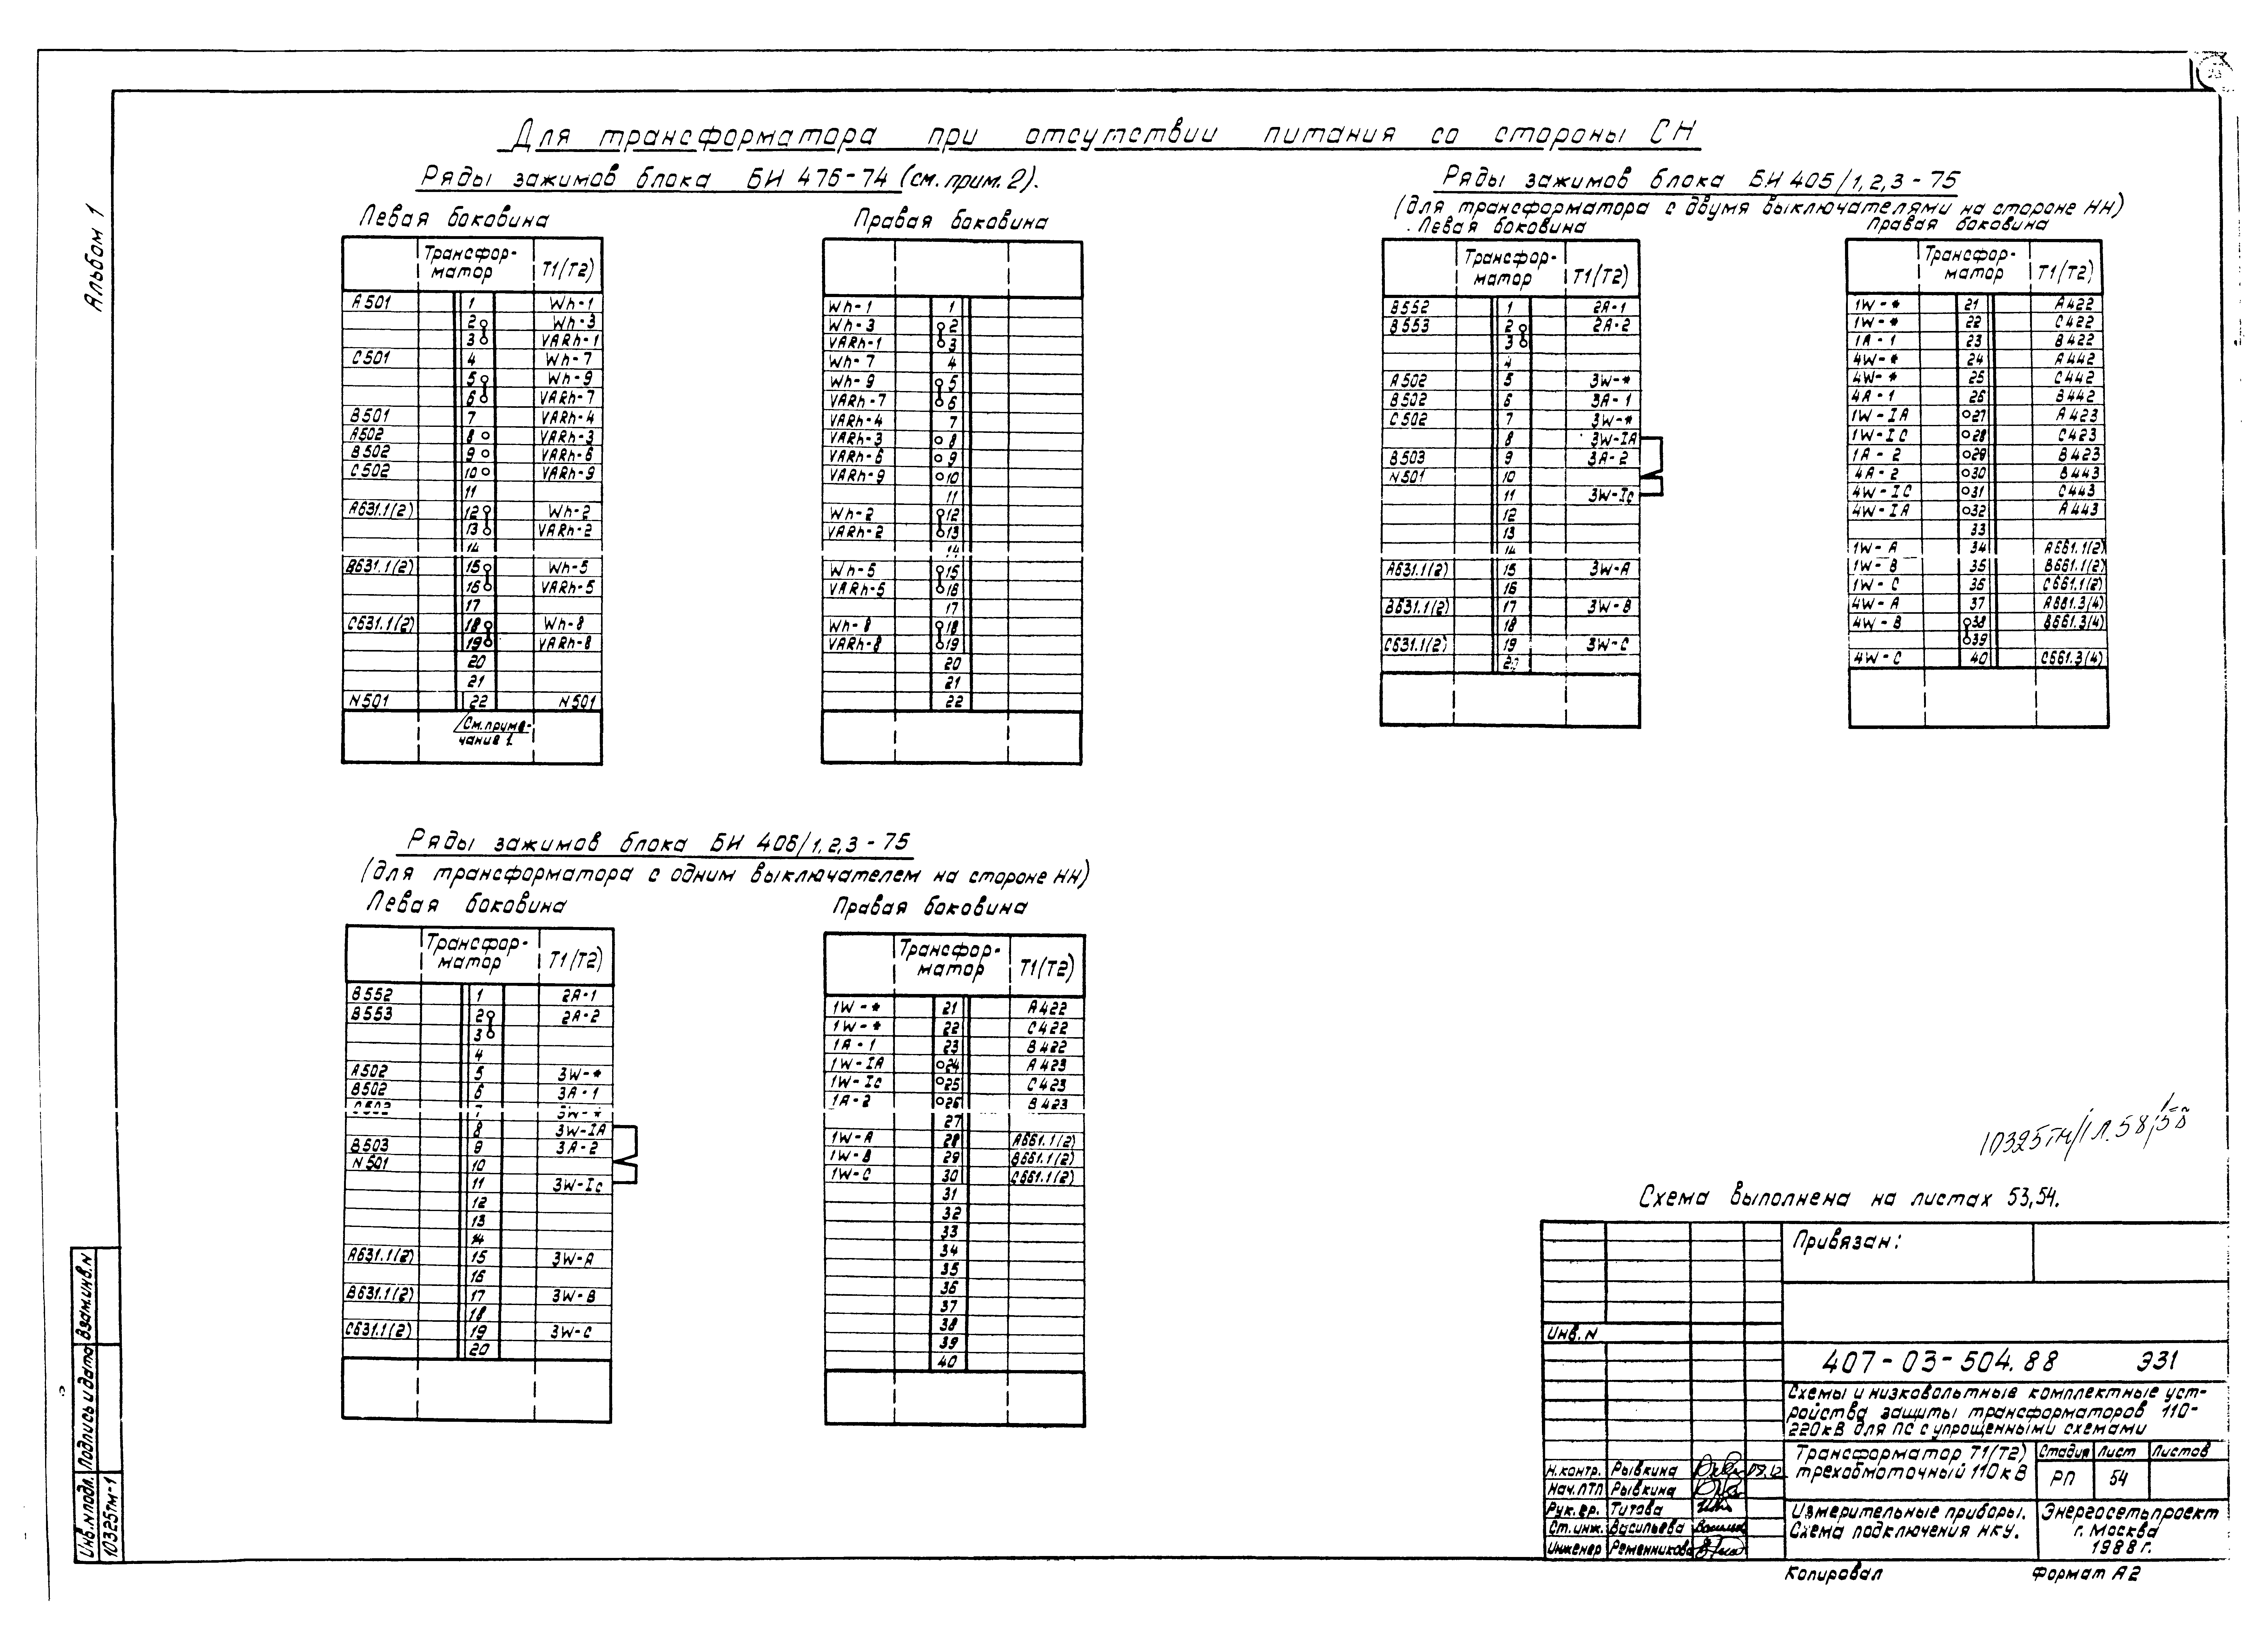 Альбом 1
Для трансформатора при отсутствии питания со стороны СН
Ряды зажимов блока БИ 476-74 (см. прим. 2).
Левая боковина
Трансфор-
матор Т1(Т2)
А501 1 Wh-1
2 Wh-3
3 VARh-1
С501 4 Wh-7
5 Wh-9
6 VARh-7
В501 7 VARh-4
А502 8 VARh-3
В502 9 VARh-6
С502 10 VARh-9
11
А631.1(2) 12 Wh-2
13 VARh-2
14
В631.1(2) 15 Wh-5
16 VARh-5
17
С631.1(2) 18 Wh-8
19 VARh-8
20
21
N501 22 N501
См. приме-
чание 1.
Правая боковина
Wh-1 1
Wh-3 2
VARh-1 3
Wh-7 4
Wh-9 5
VARh-7 6
VARh-4 7
VARh-3 8
VARh-6 9
VARh-9 10
11
Wh-2 12
VARh-2 13
14
Wh-5 15
VARh-5 16
17
Wh-8 18
VARh-8 19
20
21
22
Ряды зажимов блока БИ 405/1,2,3-75
(для трансформатора с двумя выключателями на стороне НН)
Левая боковина
Трансфор-
матор Т1(Т2)
В552 1 2А-1
В553 2 2А-2
3
4
А502 5 3W-*
В502 6 3А-1
С502 7 3W-*
8 3W-IA
В503 9 3А-2
N501 10
11 3W-Ic
12
13
14
А631.1(2) 15 3W-А
16
В631.1(2) 17 3W-В
18
С631.1(2) 19 3W-С
20
Правая боковина
Трансфор-
матор Т1(Т2)
1W-* 21 А422
1W-* 22 С422
1А-1 23 В422
4W-* 24 А442
4W-* 25 С442
4А-1 26 В442
1W-IA 27 А423
1W-IC 28 С423
1А-2 29 В423
4А-2 30 В443
4W-IC 31 С443
4W-IA 32 А443
33
1W-А 34 А661.1(2)
1W-В 35 В661.1(2)
1W-С 36 С661.1(2)
4W-А 37 А661.3(4)
4W-В 38 В661.3(4)
39
4W-С 40 С661.3(4)
Ряды зажимов блока БИ 406/1,2,3-75
(для трансформатора с одним выключателем на стороне НН)
Левая боковина
Трансфор-
матор Т1(Т2)
В552 1 2А-1
В553 2 2А-2
3
4
А502 5 3W-*
В502 6 3А-1
С502 7 3W-*
8 3W-IA
В503 9 3А-2
N501 10
11 3W-Ic
12
13
14
А631.1(2) 15 3W-А
16
В631.1(2) 17 3W-В
18
С631.1(2) 19 3W-С
20
Правая боковина
Трансфор-
матор Т1(Т2)
1W-* 21 А422
1W-* 22 С422
1А-1 23 В422
1W-IA 24 А423
1W-Ic 25 С423
1А-2 26 В423
27
1W-А 28 А661.1(2)
1W-В 29 В661.1(2)
1W-С 30 С661.1(2)
31
32
33
34
35
36
37
38
39
40
10325тм/1 л.58
Схема выполнена на листах 53,54.
Привязан:
Инв. N
407-03-504.88 ЭЗ1
Схемы и низковольтные комплектные уст-
ройства защиты трансформаторов 110-
220кВ для ПС с упрощенными схемами
Трансформатор Т1(Т2)
трехобмоточный 110кВ
Стадия Лист Листов
РП 54
Н.контр. Рывкина
Нач.ПТП Рывкина
Рук.гр. Титова
Ст.инж. Васильева
Инженер Ременникова
Измерительные приборы.
Схема подключения НКУ.
Энергосетьпроект
г. Москва
1988 г.
Копировал Формат А2
Инв.N подл. Подпись и дата Взам.инв.N
10325тм-1